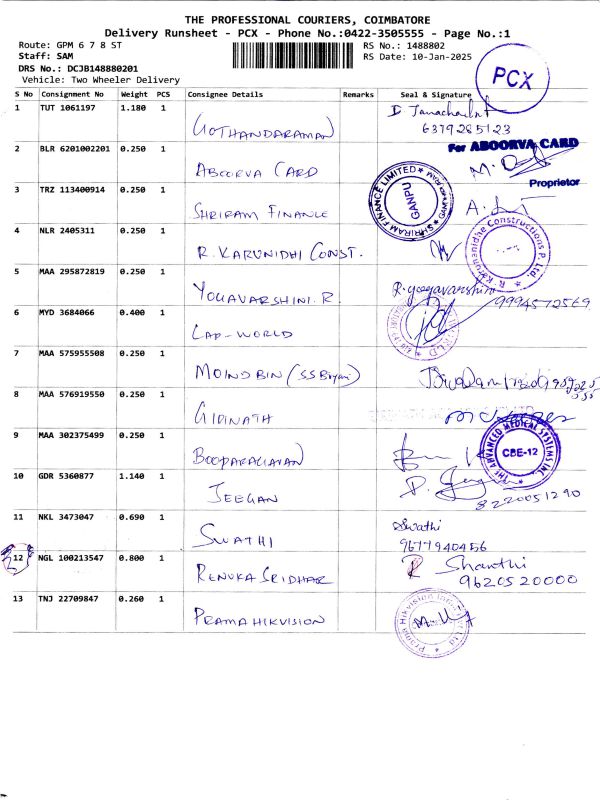 THE PROFESSIONAL COURIERS, COIMBATORE
Delivery Runsheet - PCX - Phone No.:0422-3505555 - Page No.:1
Route: GPM 6 7 8 ST
RS No.: 1488802
Staff: SAM
RS Date: 10-Jan-2025
DRS No.: DCJB148880201
Vehicle: Two Wheeler Delivery
PCX
S No Consignment No Weight PCS Consignee Details Remarks Seal & Signature
1 TUT 1061197 1.180 1
GOTHANDARAMAN
6379285123
2 BLR 6201002201 0.250 1
ABOORVA CARD
For ABOORVA CARD
Proprietor
3 TRZ 113400914 0.250 1
SHRIRAM FINANCE
SHRIRAM FINANCE LIMITED
GANPU
4 NLR 2405311 0.250 1
R. KARUNIDHI CONST.
R. Karunanidhe Constructions P. Ltd.
5 MAA 295872819 0.250 1
YOGAVARSHINI.R
R.yogavarshini
9994572569
6 MYD 3684066 0.400 1
LAP-WORLD
7 MAA 575955508 0.250 1
MOINDBIN (SS Biryani)
8 MAA 576919550 0.250 1
GIDINATH
9 MAA 302375499 0.250 1
BOOPARAGHAVAN
THE ADVANCED MEDICAL SYSTEMS INC
CBE-12
10 GDR 5360877 1.140 1
JEEGAN
8220051290
11 NKL 3473047 0.690 1
SWATHI
Swathi
9677940456
12 NGL 100213547 0.800 1
RENUKA SRIDHAR
R Shanthi
9620520000
13 TNJ 22709847 0.260 1
PRAMA HIKVISION
Prama Hikvision